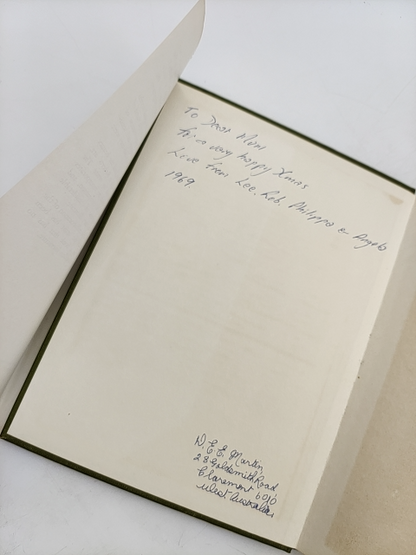 To Dear Mum
For a very happy Xmas
Love from Lee, Rob, Philippa & Angela
1969.
N. E. E. Martin,
28 Goldsmith Road
Claremont 6010
West Australia.